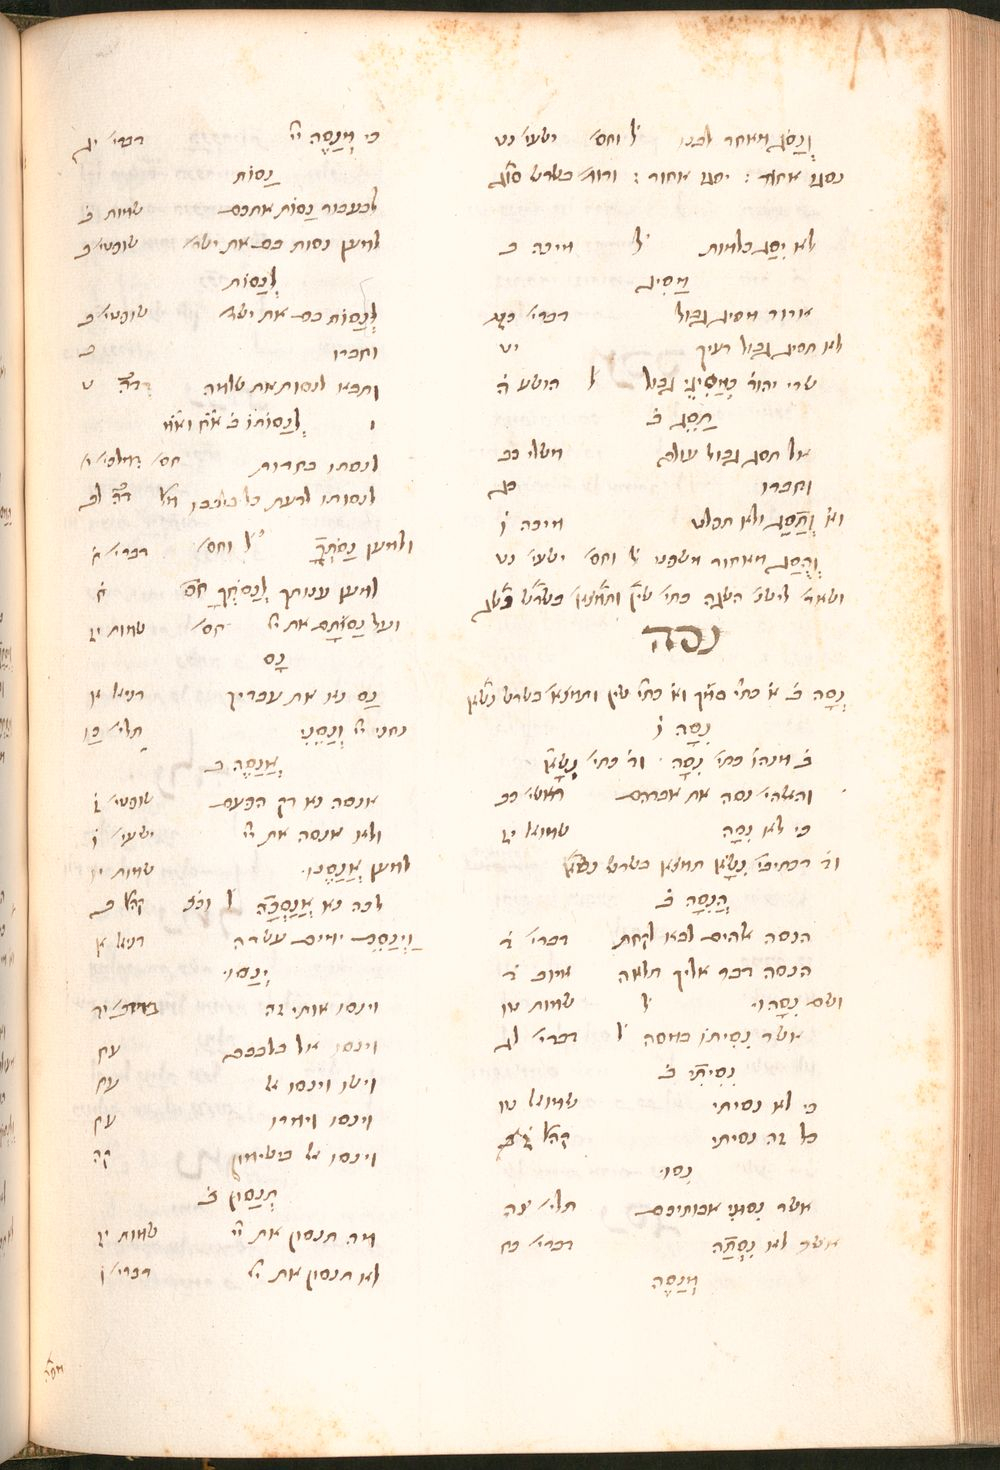 וְנָסֹג מאחר אלהינו ל׳ וחס׳ ישעי׳ נט
נסגו אחור : יסגו אחור : ודומ׳ בשרש סוג
לא יִסַּג כלמות ל׳ מיכה ב
מַסִּיג
ארור מסיג גבול דברי׳ כז
לא תסיג גבול רעיך יט
שרי יהוד׳ כְּמַסִּיגֵי גבול ל׳ הושע ה
תַּסֵּג ב׳
אל תסג גבול עולם משלי כב
וחברו כג
וא׳ וְתַסֵּג ולא תפליט מיכה ו
וְהֻסַּג אחור משפט ל׳ וחס׳ ישעי׳ נט
ושאר לישנ׳ השגה כתי׳ שין ותמצא׳ בשרש נשג
נסה
נִסָּה ב׳ א׳ כתי׳ סמך וא׳ כתי׳ שין ותמצא בשרש נשא
נִסָּה ו׳
ב׳ מנהו׳ כתי׳ נִסָּה · וד׳ כתי׳ נִשָּׂא
והאלהי׳ נסה את אברהם ראשי׳ כב
כי לא נִסָּה שמואל יז
וד׳ דכתיבי׳ נִשָּׂא תמצא בשרש נשא
הֲנִסָּה ב׳
הנסה אלהים לבא לקחת דברי׳ ד
הנסה דבר אליך תלאה איוב ד
ושם נִסָּהוּ ל׳ שמות טו
אשר נִסִּיתוֹ במסה ל׳ דברי׳ לג
נִסִּיתִי ב׳
כי לא נסיתי שמואל יז
כל זה נסיתי קהל׳ ז
נִסּוּ
אשר נִסּוּנִי אבותיכם תלי׳ צה
אשר לא נִסְּתָה דברי׳ כח
מְנַסֶּה
כי מְנַסֶּה יי׳ דברי׳ יג
נַסּוֹת
לבעבור נַסּוֹת אתכם שמות כ
למען נסות בם את ישר׳ שופטי׳ ב
לְנַסּוֹת
לְנַסּוֹת בם את ישר׳ שופטי׳ ג
וחברו ג
ותבא לנסות את שלמה דה״ב ט
לְנַסּוֹתוֹ ב׳ א׳ מל׳ וא׳ חס׳
לנסתו בחדות חס׳ מלכי׳ י
לנסותו לדעת כל בלבבו מל׳ דה״ב לב
ולמען נַסֹּתֶךָ ל׳ וחס׳ דברי׳ ח
למען ענותך לְנַסֹּתְךָ חס׳ ח
ועל נַסֹּתָם את יי׳ חס׳ שמות יז
נַס
נַס נא את עבדיך דניאל א
בחנני יי׳ וְנַסֵּנִי תלי׳ כו
אֲנַסֶּה ב
אנסה נא רק הפעם שופטי׳ ו
ולא אנסה את יי׳ ישעי׳ ז
למען אֲנַסֶּנּוּ שמות יו
לכה נא אֲנַסְּכָה ל׳ קהל׳ ב
וַיְנַסֵּם ימים עשרה דניאל א
יְנַסּוּ
וינסו אותי זה במדבר׳ יד
וינסו אל בלבבם עח
וישובו וינסו אל עח
וינסו וימרו עח
וינסו אל בישימון קו
תְּנַסּוּן ב׳
מה תנסון את יי׳ שמות יז
לא תנסון את יי׳ דברי׳ ו